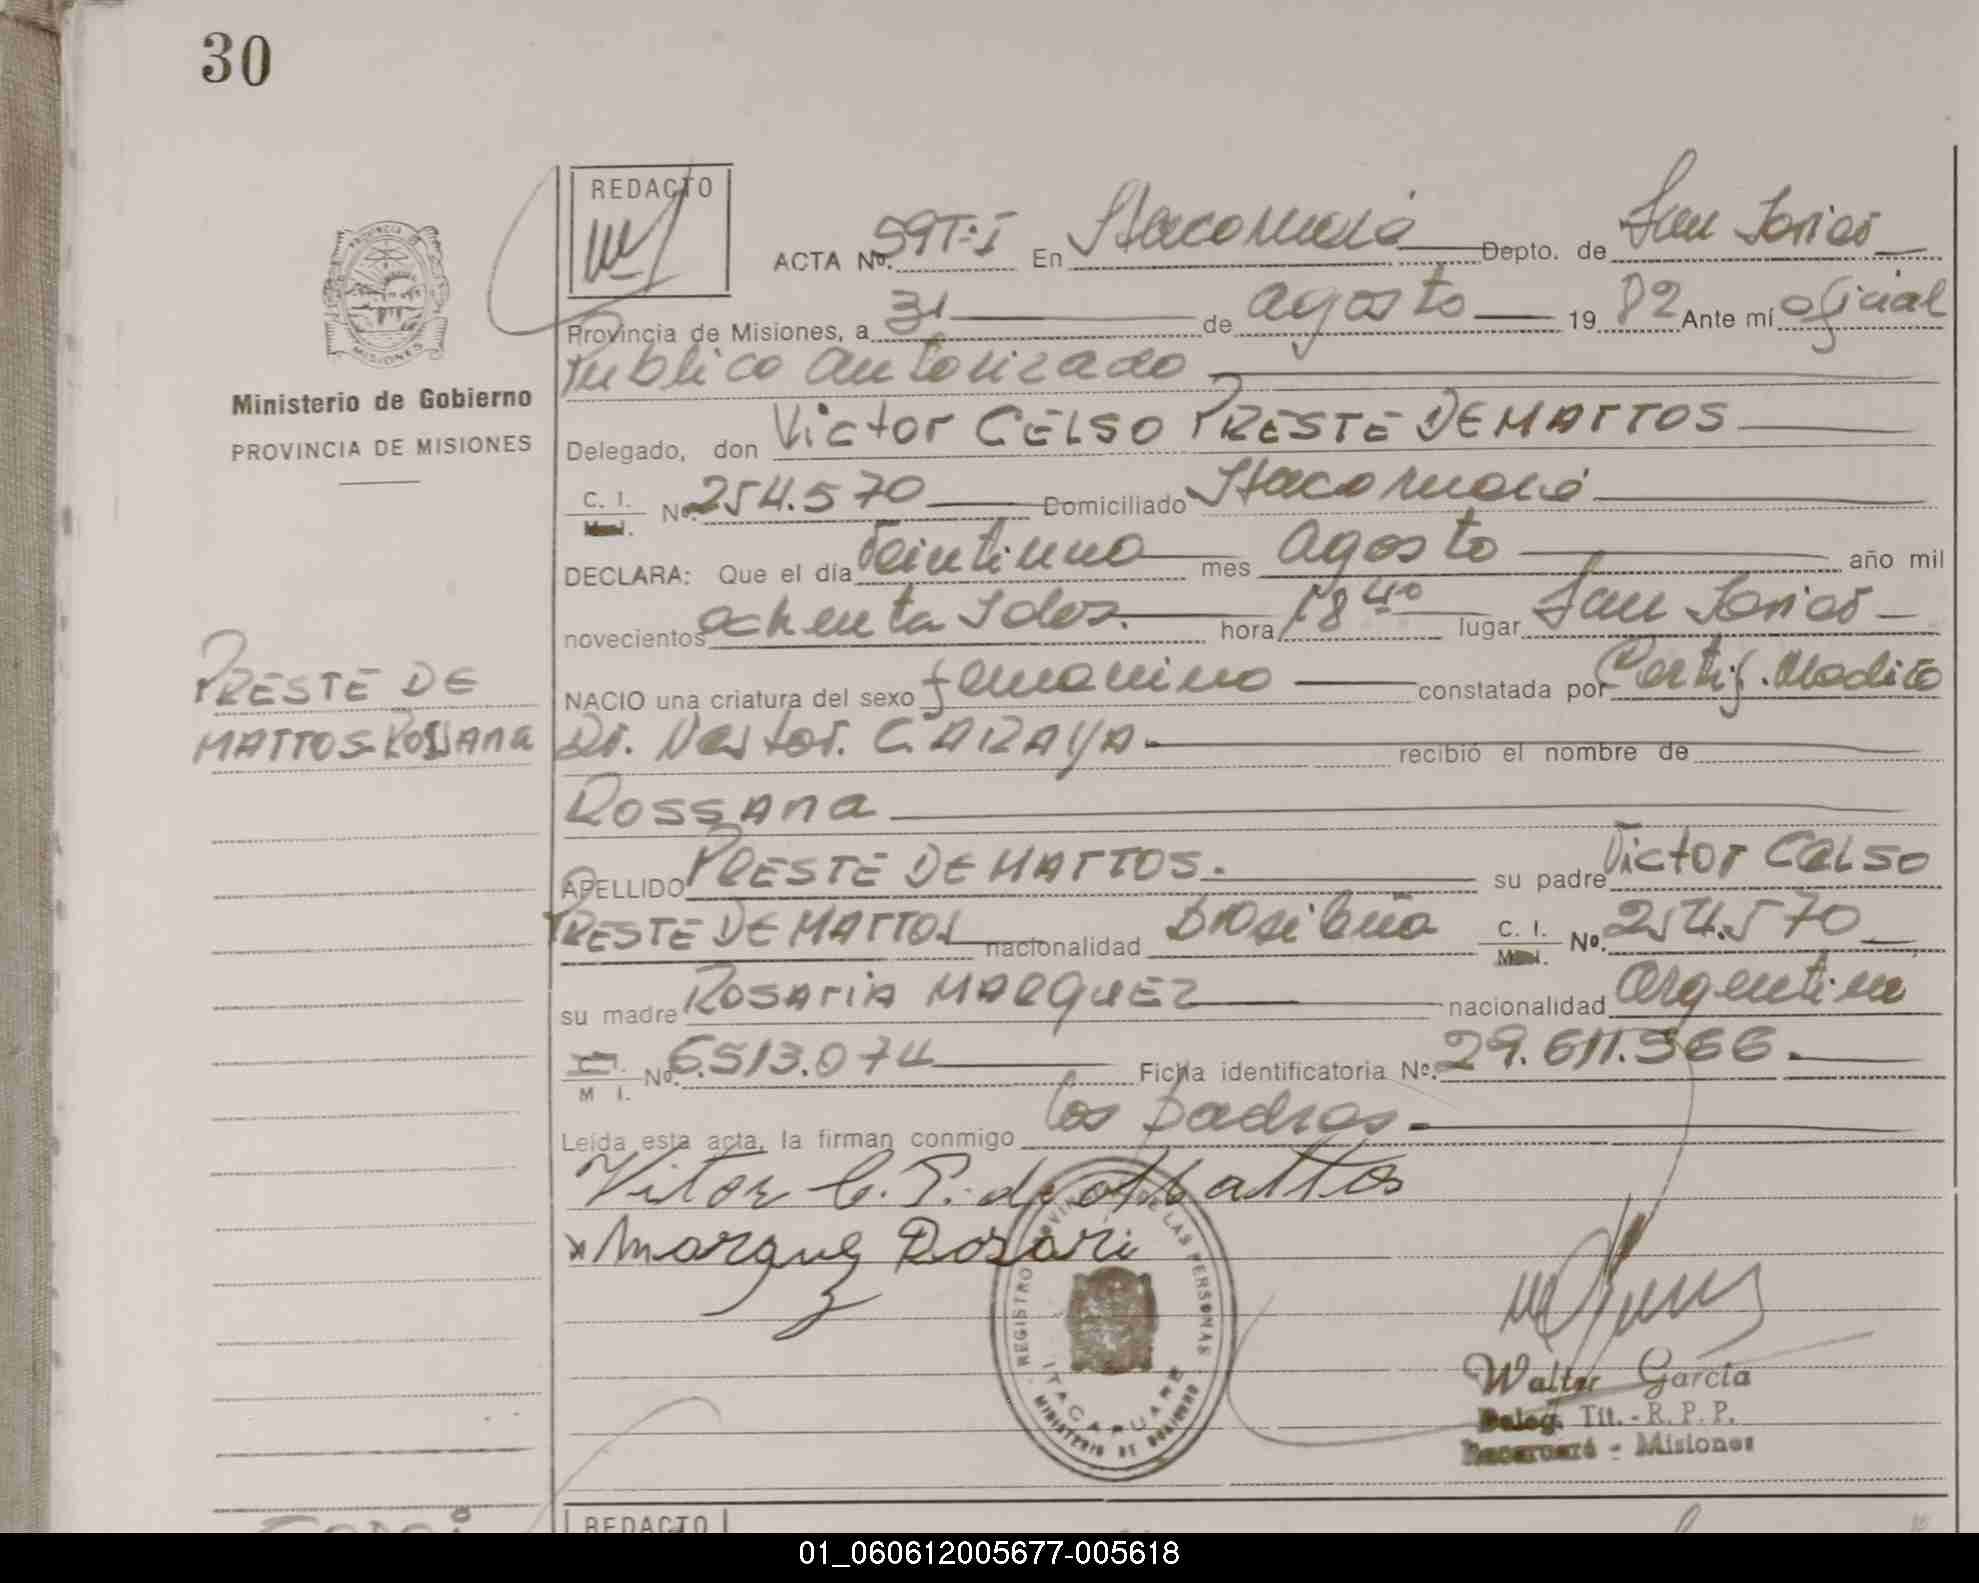 30
REDACTO
ACTA No. 59T:I En Itacaruaré Depto. de San Javier
Provincia de Misiones, a 31 de agosto 1982 Ante mí oficial
Publico autorizado
Ministerio de Gobierno
PROVINCIA DE MISIONES
Delegado, don Victor CELSO PRESTE DE MATTOS
C. I. M. I. No. 254.570 Domiciliado Itacaruaré
DECLARA: Que el día Veintiuno mes agosto año mil
novecientos ochenta y dos. hora 18 40 lugar San Javier
NACIO una criatura del sexo femenino constatada por Certif. Medico
Dr. Nestor. GARAYA recibió el nombre de
PRESTE DE
MATTOS Rossana
Rossana
APELLIDO PRESTE DE MATTOS. su padre Victor CELSO
PRESTE DE MATTOS nacionalidad Brasileña C. I. M. I. No. 254.570
su madre ROSARIA MARQUEZ nacionalidad argentina
C. I. M I. No. 6.513.074 Ficha identificatoria No. 29.611.566.
Leída esta acta, la firman conmigo los padres
Vitor C. P. de Mattos
x Marquez Rosari
REGISTRO PROVINCIAL DE LAS PERSONAS
ITACARUARE
MINISTERIO DE GOBIERNO
Walter García
Deleg. Tit. - R. P. P.
Itacaruaré - Misiones
REDACTO
01_060612005677-005618